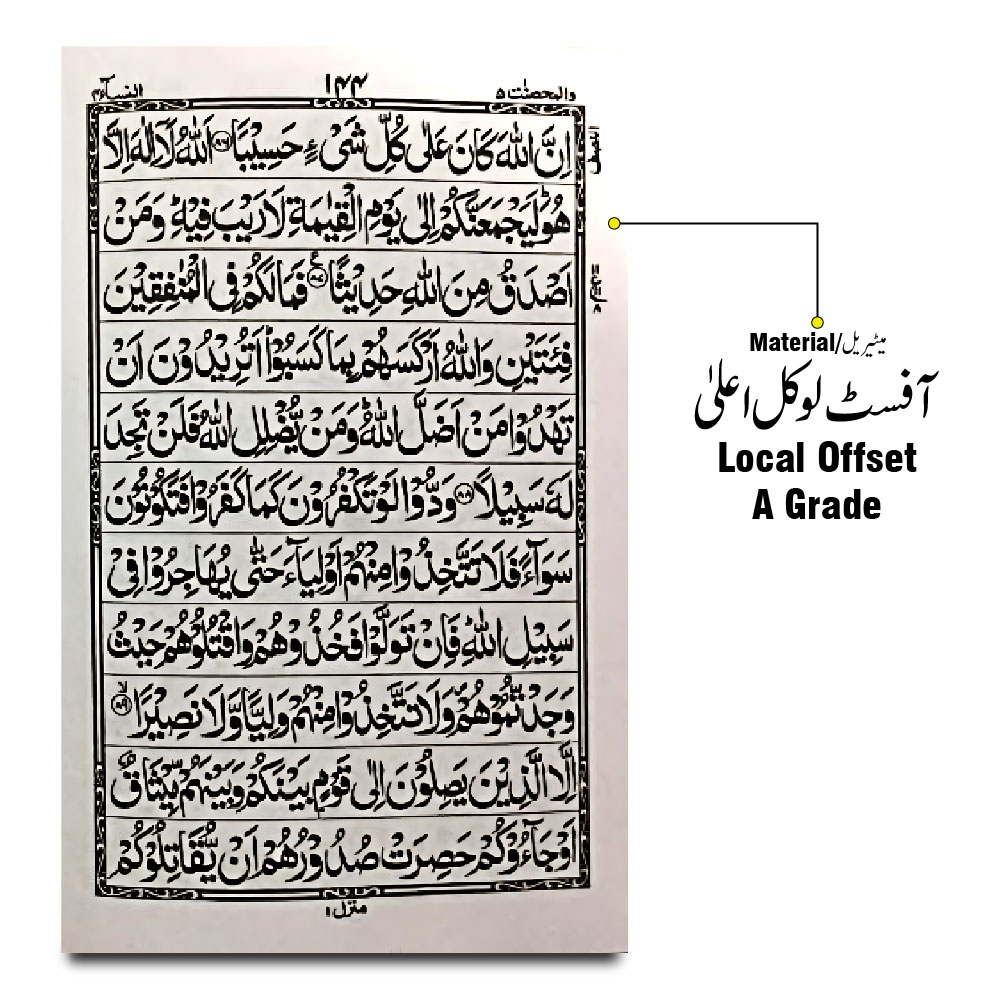 والمحصنت ۵ ۱۴۴ النسآء۴
اِنَّ اللّٰهَ كَانَ عَلٰى كُلِّ شَىْءٍ حَسِيْبًا ﴿۸۶﴾ اَللّٰهُ لَآ اِلٰهَ اِلَّا
هُوَ ؕ لَيَجْمَعَنَّكُمْ اِلٰى يَوْمِ الْقِيٰمَةِ لَا رَيْبَ فِيْهِ ؕ وَمَنْ
اَصْدَقُ مِنَ اللّٰهِ حَدِيْثًا ﴿۸۷﴾ ع فَمَا لَكُمْ فِى الْمُنٰفِقِيْنَ
فِئَتَيْنِ وَاللّٰهُ اَرْكَسَهُمْ بِمَا كَسَبُوْا ؕ اَتُرِيْدُوْنَ اَنْ
تَهْدُوْا مَنْ اَضَلَّ اللّٰهُ ؕ وَمَنْ يُّضْلِلِ اللّٰهُ فَلَنْ تَجِدَ
لَهٗ سَبِيْلًا ﴿۸۸﴾ وَدُّوْا لَوْ تَكْفُرُوْنَ كَمَا كَفَرُوْا فَتَكُوْنُوْنَ
سَوَآءً فَلَا تَتَّخِذُوْا مِنْهُمْ اَوْلِيَآءَ حَتّٰى يُهَاجِرُوْا فِىْ
سَبِيْلِ اللّٰهِ ؕ فَاِنْ تَوَلَّوْا فَخُذُوْهُمْ وَاقْتُلُوْهُمْ حَيْثُ
وَجَدْتُّمُوْهُمْ ۪ وَلَا تَتَّخِذُوْا مِنْهُمْ وَلِيًّا وَّلَا نَصِيْرًا ﴿۸۹﴾ ۙ
اِلَّا الَّذِيْنَ يَصِلُوْنَ اِلٰى قَوْمٍۢ بَيْنَكُمْ وَبَيْنَهُمْ مِّيْثَاقٌ
اَوْ جَآءُوْكُمْ حَصِرَتْ صُدُوْرُهُمْ اَنْ يُّقَاتِلُوْكُمْ
منزل ۱
Material/میٹیریل
آفسٹ لوکل اعلیٰ
Local Offset
A Grade